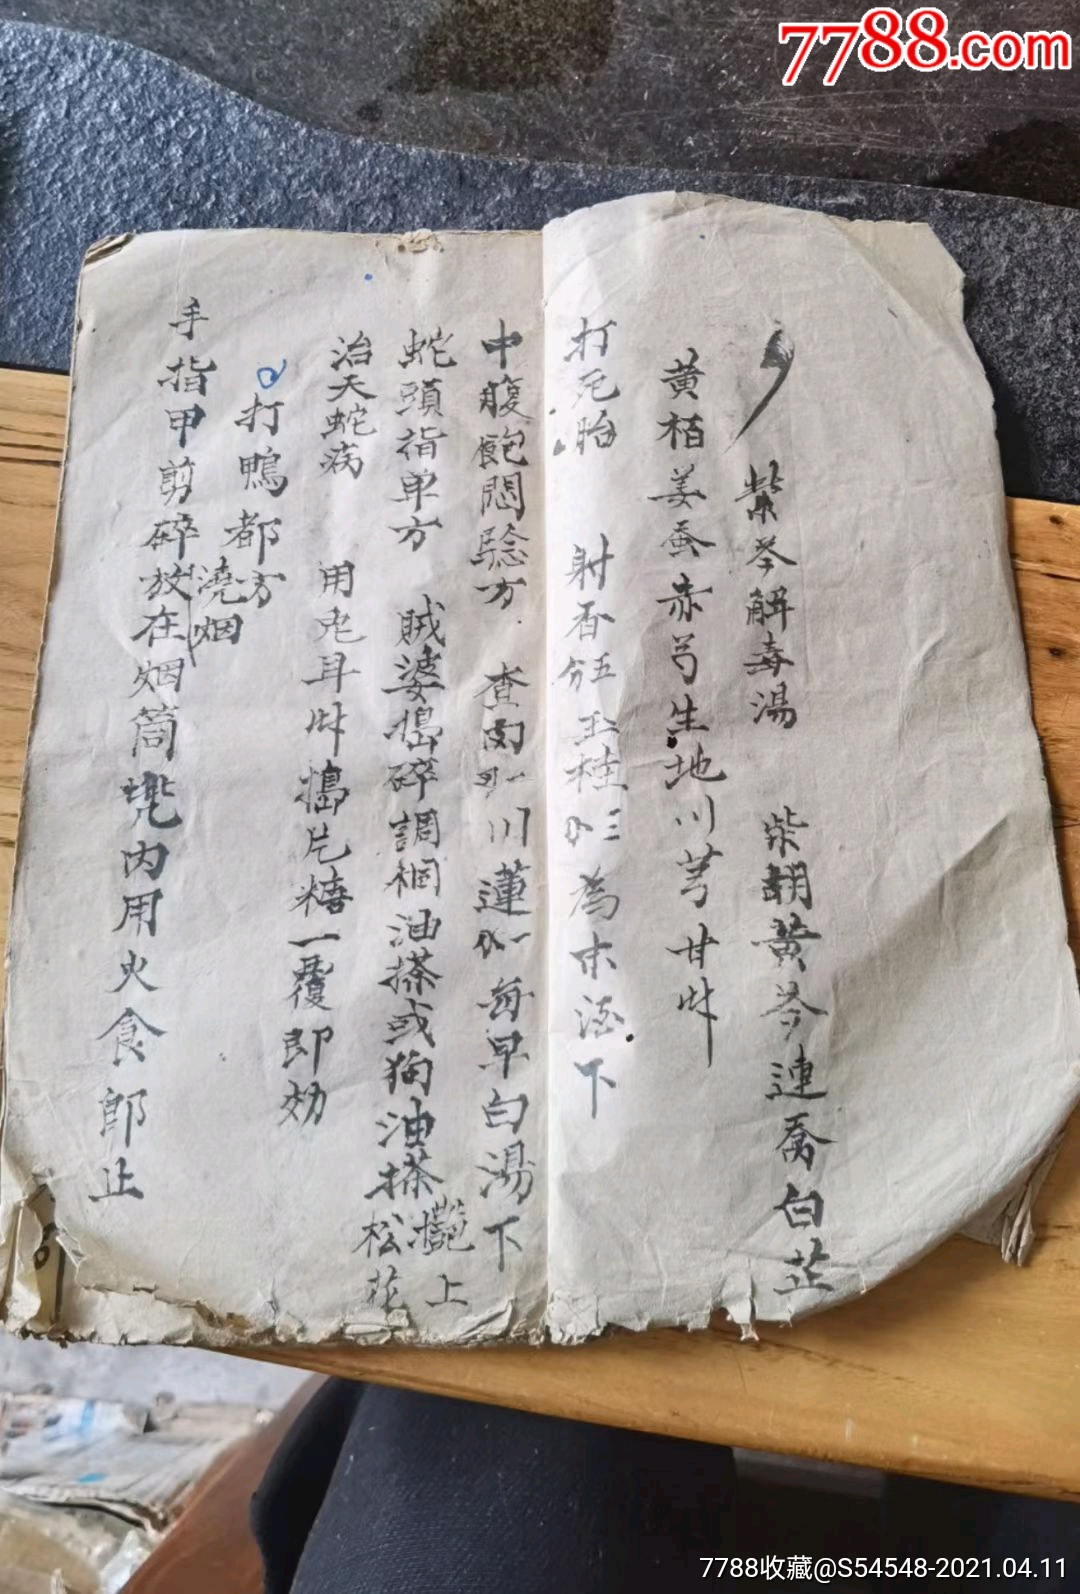 7788.com
柴芩解毒湯 柴胡黄芩連喬白芷
黄栢姜蚕赤芍生地川芎甘艸
打死胎 射香五分玉桂三分為末酒下
中腹飽悶驗方 查肉 川蓮 每早白湯下
蛇頭指单方 賊婆搗碎調桐油搽或狗油搽
松花 上
治天蛇病 用兎耳艸搗片糖一覆即効
打鴨都方
澆烟
手指甲剪碎放在烟筒兠内用火食即止
7788收藏@S54548-2021.04.11